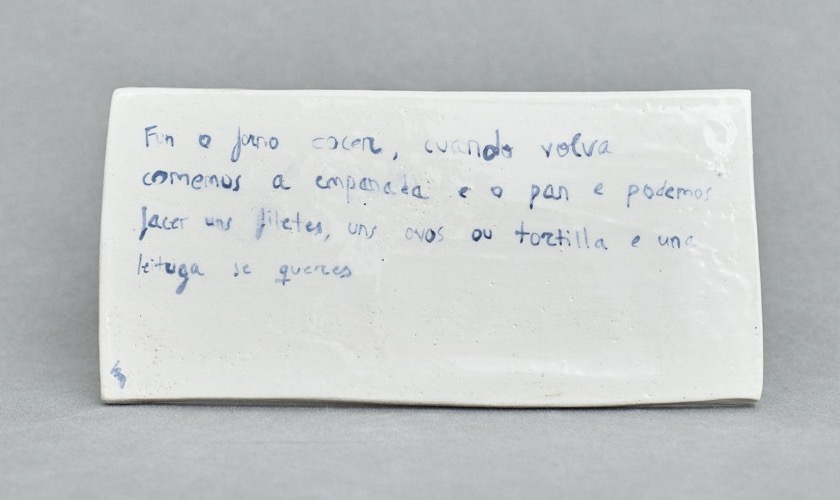 Fun o forno cocer, cuando volva
comemos a empanada e o pan e podemos
facer uns filetes, uns ovos ou tortilla e una
leituga se queres